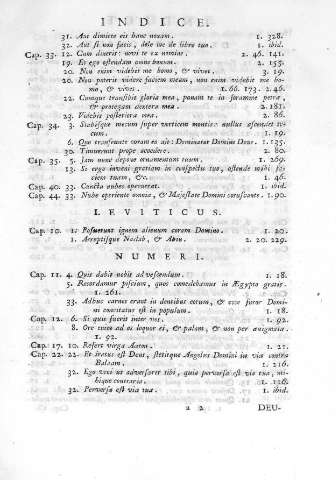 INDICE.
31. Aut dimitte eis hanc noxam. 1. 328.
32. Aut si non facis, dele me de libro tuo. 1. ibid.
Cap. 33. 12. Cum dixeris: novi te ex nomine. 2. 46. 141.
19. Ego ostendam omne bonum. 2. 155.
20. Non enim videbit me homo, & vivet. 3. 19.
20. Non poteris videre faciem meam, non enim videbit me ho-
mo, & vivet. 1. 66. 173. 2. 46.
22. Cumque transibit gloria mea, ponam te in foramine petræ,
& protegam dextera mea. 2. 281.
23. Videbis posteriora mea. 2. 86.
Cap. 34. 3. Stabisque mecum super verticem montis: nullus ascendat te-
cum. 1. 19.
6. Quo transeunte coram eo ait: Dominator Domine Deus. 1. 135.
30. Timuerunt prope accedere. 2. 80.
Cap. 35. 5. Jam nunc depone ornamentum tuum. 1. 269.
13. Si ergo inveni gratiam in conspectu tuo, ostende mihi fa-
ciem tuam, &c. 1. 46.
Cap. 40. 33. Cuncta nubes operuerat. 1. ibid.
Cap. 44. 33. Nube operiente omnia, & Majestate Domini coruscante. 1. 90.
LEVITICUS.
Cap. 10. 1. Posuerunt ignem alienum coram Domino. 1. 20.
1. Arreptisque Nadab, & Abiu. 2. 20. 229.
NUMERI.
Cap. 11. 4. Quis dabit nobis ad vescendum. 1. 18.
5. Recordamur piscium, quos comedebamus in Ægypto gratis.
1. 261.
33. Adhuc carnes erant in dentibus eorum, & ecce furor Domi-
ni concitatus est in populum. 1. 18.
Cap. 12. 6. Si quis fuerit inter vos. 1. 92.
8. Ore enim ad os loquor ei, & palam, & non per ænigmata.
1. 92.
Cap. 17. 10. Refert virga Aaron. 1. 21.
Cap. 22. 22. Et iratus est Deus, stetitque Angelus Domini in via contra
Balaam. 1. 116.
32. Ego veni ut adversarer tibi, quia perversa est via tua, mi-
hique contraria. 1. 116.
32. Perversa est via tua. 1. ibid.
a 2 DEU-